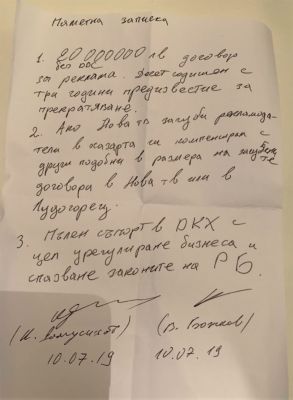 Паметна записка
1. 20 000 000 лв договор
без ДДС
за реклама. Десет годишен с
три години предизвестие за
прекратяване.
2. Ако Нова тв загуби рекламода-
тели в хазарта ги компенсира с
други подобни в размера на
договора в Нова тв или в
Лудогорец.
3. Пълен съпорт в ДКХ с
цел урегулиране бизнеса и
спазване законите на РБ.
(В. Божков)
10.07.19 10.07.19